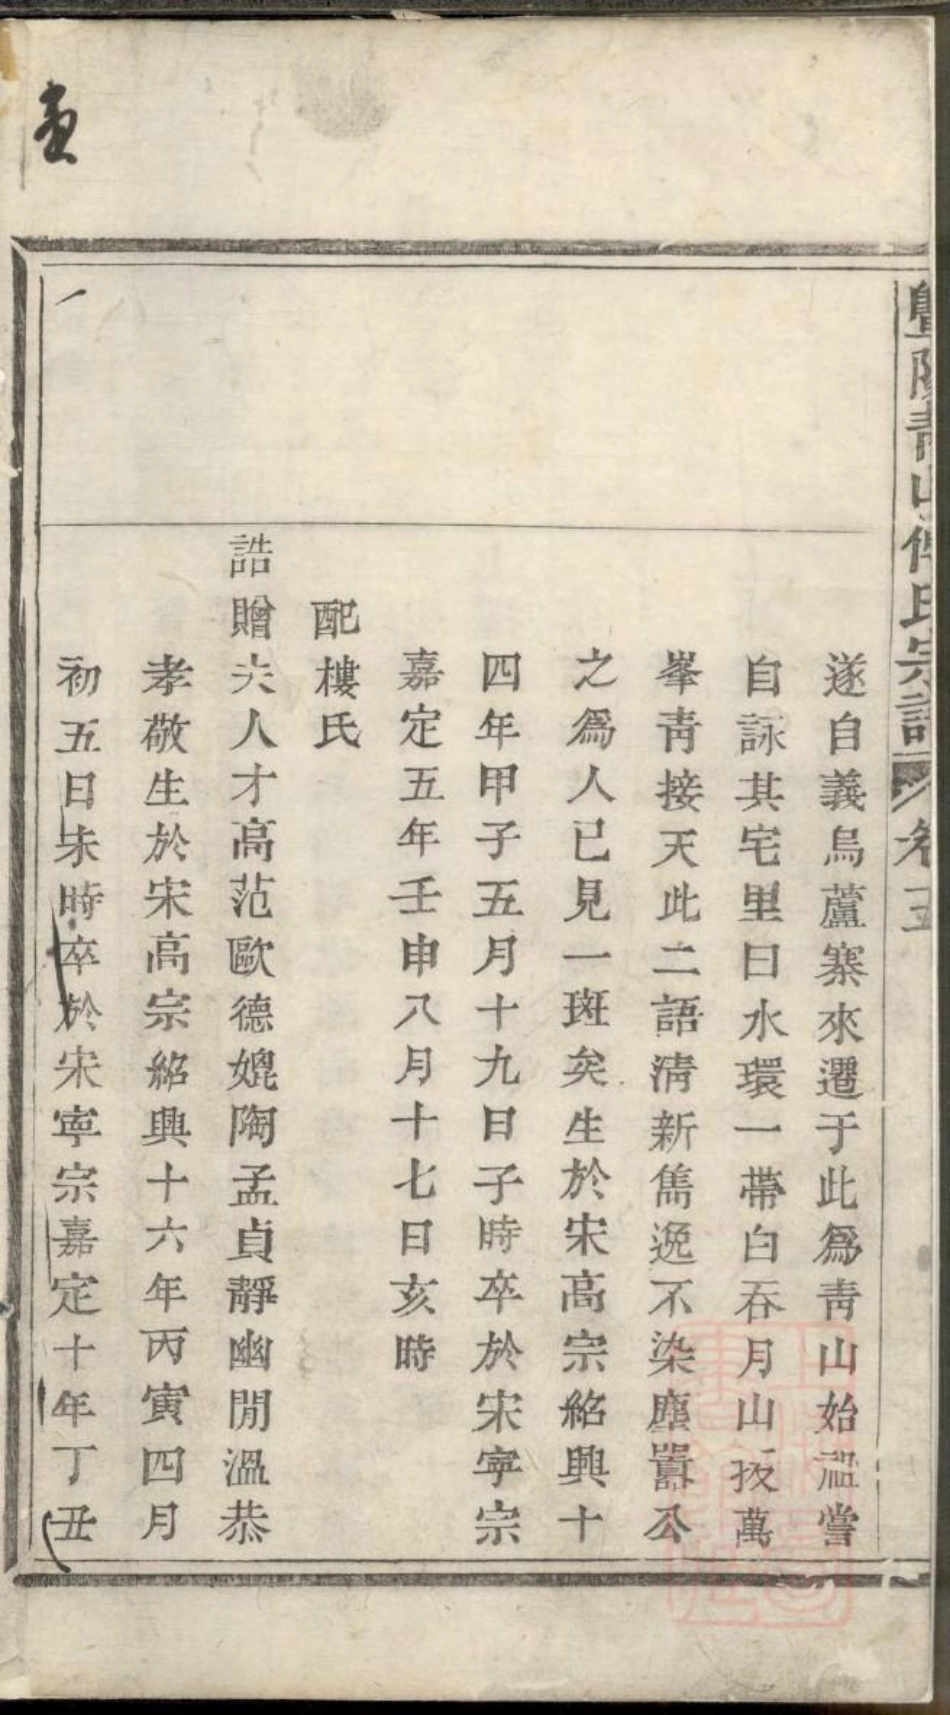 暨陽青山傅氏宗譜 卷五
遂自義烏蘆寨來遷于此爲靑山始祖嘗
自詠其宅里曰水環一帶白吞月山拔萬
峯靑接天此二語淸新雋逸不染塵囂公
之爲人已見一斑矣生於宋高宗紹興十
四年甲子五月十九日子時卒於宋寧宗
嘉定五年壬申八月十七日亥時
配樓氏
誥贈夫人才高范歐德媲陶孟貞靜幽閒溫恭
孝敬生於宋高宗紹興十六年丙寅四月
初五日未時卒於宋寧宗嘉定十年丁丑